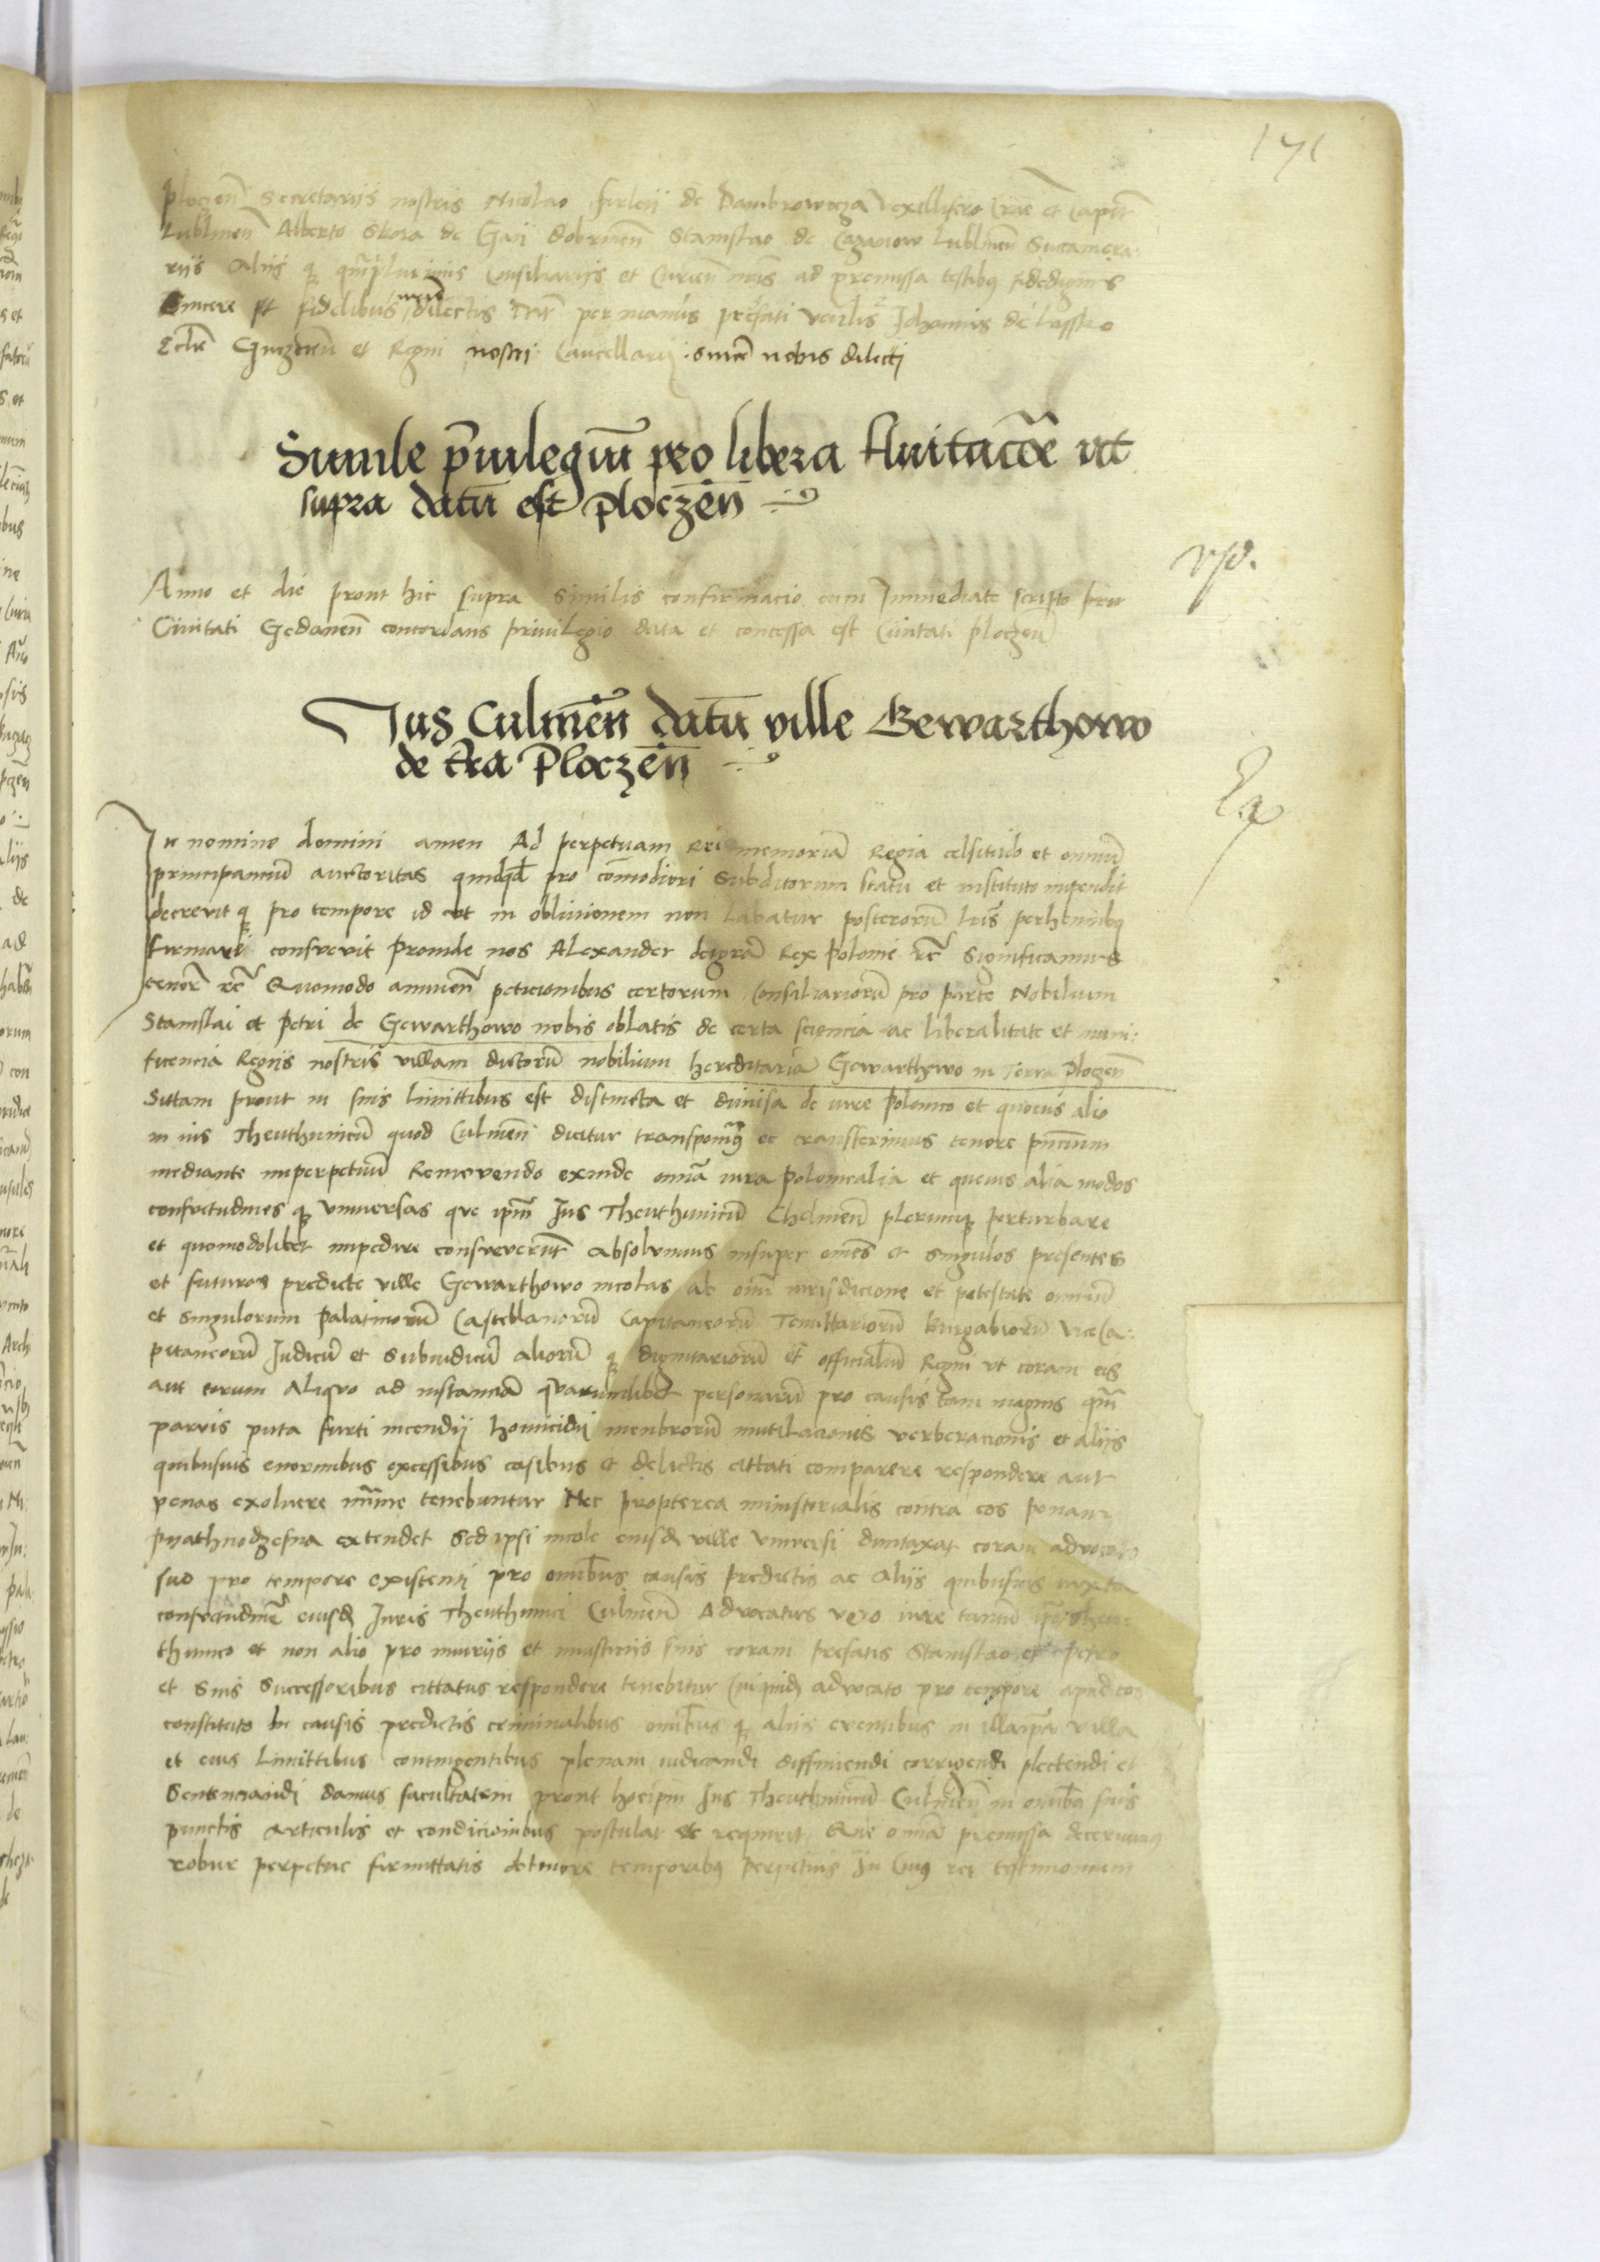 171
ploczen̄ Secretariis nostris Nicolao firleii de Dambrowicza Vexillifero Crac̄ et Capit̄
Lublinen̄ Alberto Skora de Gaii dobrinen̄ Stanislao de Lublinen̄ Succamera
riis Aliis qȝ qm̄plurimis Consiliariis et Curien̄ nr̄is ad premissa testibꝰ fidedignis
Sincere et fidelibus nr̄is dilectis Dat̄ per manus prefati Johannis de Lassko
Gneznen̄ et Regni nostri Cancellarii since nobis dilecti
Simile p̄uilegiū pro libera fluitacōe vt
supra datū est Ploczen̄
vsd.
Anno et die prout hic supra Similis confirmacio cum Immediate scripto
Ciuitati Gedanen̄ concordans priuilegio data et concessa est Ciuitati ploczen̄
Ius Culmen̄ datū ville Gewarthowo
de tr̄ra Ploczen̄
In nomine domini amen Ad perpetuam Rei memoriā Regia celsitudo et omniū
principanciū auctoritas quidqd̄ pro cōmodiori Subditorum statu et instituto inpendit
decreuit qȝ pro tempore id vt in obliuionem non Labatur posterorū lr̄is perhennibꝰ
firmari consueuit Proinde nos Alexander deigrā Rex polonie rc̄ Significamus
tenor̄ rc̄ Quomodo annuen̄ peticionibus certorum Consiliariorū pro parte Nobilium
Stanislai et Petri de Gewarthowo nobis oblatis de certa sciencia ac liberalitate et muni:
ficencia Regiis nostris villam dictorū nobilium hereditariā Gewarthowo in Terra Ploczen̄
Sittam prout in suis limittibus est distincta et diuisa de iure polonico et quouis alio
in ius Theuthunicū quod Culmen̄ dicitur transponimꝰ et transferimus tenore pn̄cium
mediante inperpetuū Remouendo exinde omīa iura polonicalia et queuis alia modos
consuetudines qȝ vniuersas que ipm̄ Ius Theuthunicū Chelmen̄ plerumqȝ perturbare
et quomodolibet inpedire consueuerūt Absoluimus insuper omēs et singulos presentes
et futuros predicte ville Gewarthowo incolas ab omī iurisdicione et potestate omniū
et singulorum palatinorū Castellanorū Capitaneorū Tenuttariorū Burgabiorū viceCa:
pitaneorū Iudicū et Subiudicū aliorū qȝ dignitariorū et officialiū Regni vt coram eis
aut eorum Aliquo ad instanciā quarumlibet personarū pro causis tam magnis qm̄
parvis puta furti incendij homicidij menbrorū mutilacionis verberacionis et aliis
quibusuis enormibus excessibus casibus et delictis cittati comparere respondere aut
penas exoluere mīme tenebuntur Nec propterea ministerialis contra eos penam
pyathnodzesna extendet Sed ipsi incole eiusdȝ ville vniuersi duntaxat coram advocato
suo pro tempore existenti pro omībus causis predictis ac Aliis quibusuis iuxta
consuetudinē eiusdȝ Iuris Theuthunici Culmen̄ Advocatus vero iure tantū
thunico et non alio pro iniuriis et iniusticiis suis coram prefatis Stanislao et Petro
et Suis Successoribus cittatus respondere tenebitur Cui quidȝ advocato pro tempore apud eos
constituto in causis predictis criminalibus omībus qȝ aliis euentibus in illaipa villa
et eius limittibus contingentibus plenam iudicandi diffiniendi corrigendi plectendi et
Sentenciandi damus facultatem prout hocipm̄ Ius Theuthunicū Culmen̄ in omība suis
punctis Articulis et condicionibus postulat et requirit Que omīa premissa decernimꝰ
robur perpetue firmittatis obtinere temporibꝰ perpetuis In Cuiꝰ rei testimonium